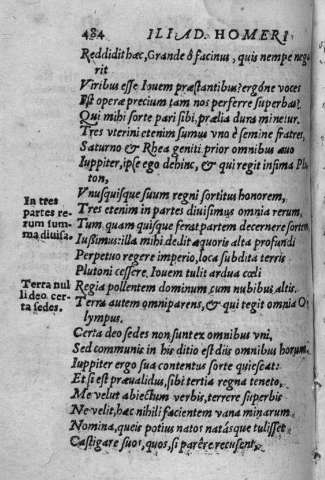 484 ILIAD. HOMERI
Reddidit hæc, Grande ô facinus, quis nempe nega
rit
Viribus esse Iovem præstantibus? ergóne voces
Est operæ precium tam nos perferre superbas?
Qui mihi sorte pari sibi, prælia dura minetur.
Tres vterini etenim sumus vno è semine fratres,
Saturno & Rhea geniti prior omnibus auo
Iuppiter, ipse ego dehinc, & qui regit infima Plu
ton,
Vnusquisque suum regni sortitus honorem,
In tres
partes re-
rum sum-
ma diuisa.
Tres etenim in partes diuisimus omnia rerum,
Tum quam quisque ferat partem decernere sortem
Iussimus: illa mihi dedit aquoris alta profundi
Perpetuo regere imperio, loca subdita terris
Plutoni cessere, Iouem tulit ardua cœli
Terra nul
li deo cer-
ta sedes.
Regia pollentem dominum cum nubibus altis.
Terra autem omniparens, & qui tegit omnia O
lympus.
Certa deo sedes non sunt ex omnibus vni,
Sed communis in his ditio est diis omnibus horum,
Iuppiter ergo sua contentus sorte quiescat:
Et si est præualidus, sibi tertia regna teneto,
Me velut abiectum verbis, terrere superbis
Ne velit, hac nihili facientem vana minarum
Nomina, queis potius natos natásque tulisset
Castigare suos, quos, si parêre recusent,